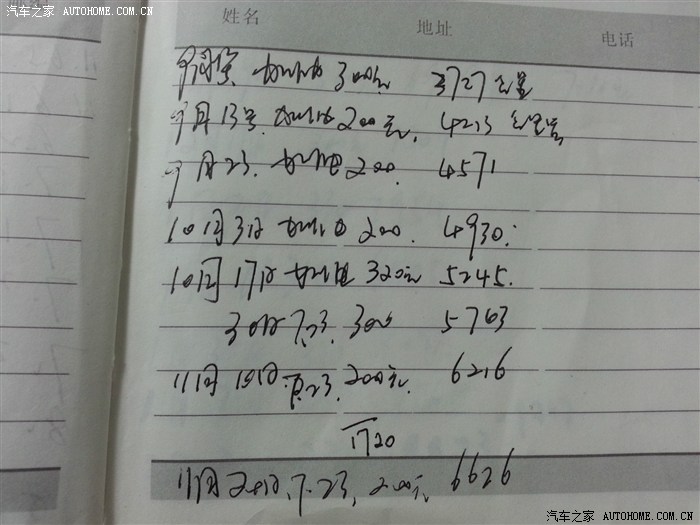 汽车之家 AUTOHOME.COM.CN
姓名 地址 电话
加油 300元 3727公里
9月13号. 加油200元, 4213 公里
9月23. 加油 200. 4571
10月3日 加油 200. 4930.
10月17日 加油 320元 5245.
30日 7.23. 300 5763
11月10日. 7.23. 200元. 6216
1720
11月20日, 7.23, 200元 6626
汽车之家 AUTOHOME.COM.CN